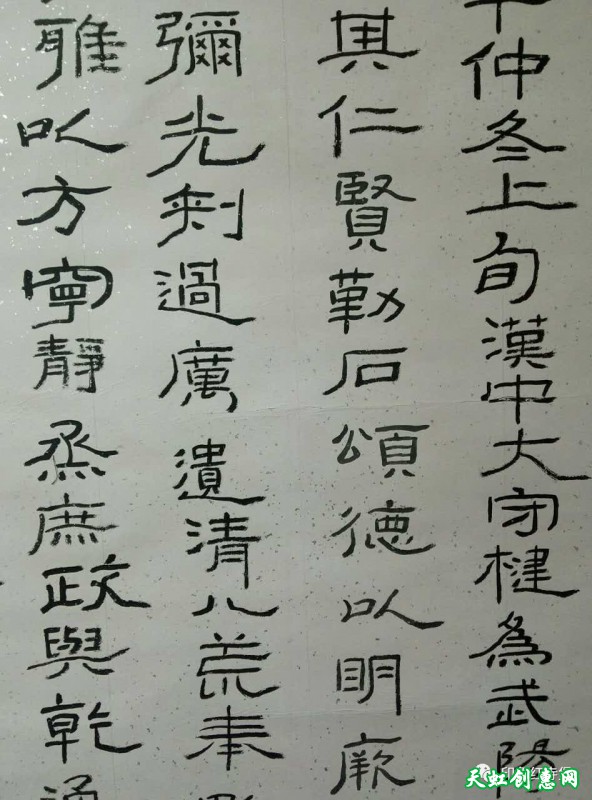 仲冬上旬漢中大守楗為武陽
其仁賢勒石頌德以明厥
彌光刺過厲遺清八荒奉
雅以方寧靜烝庶政與乾通
天虹创意网